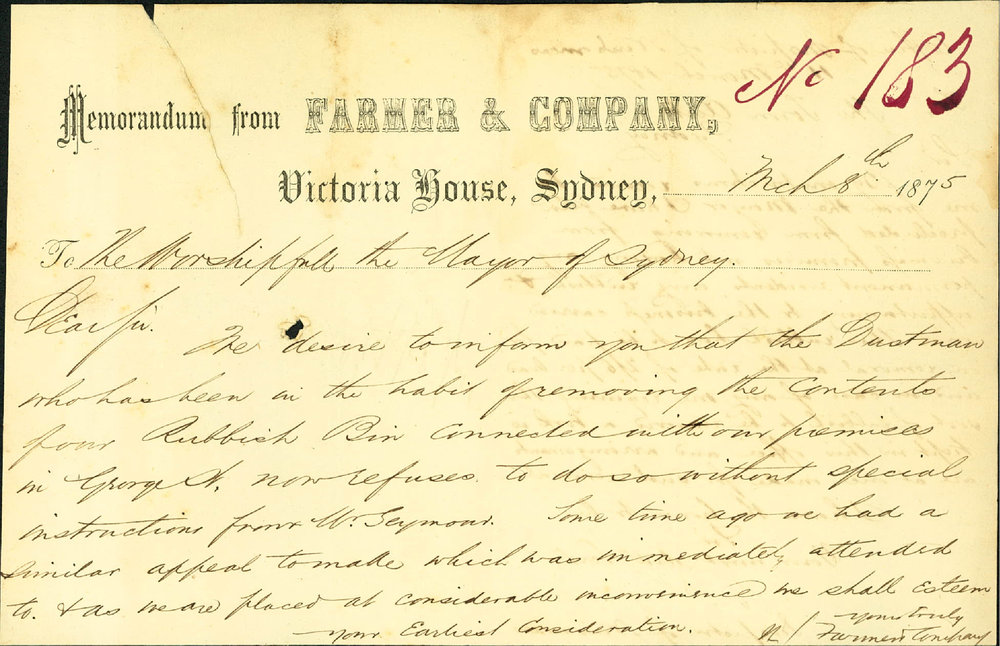 No 183
Memorandum from FARMER & COMPANY,
Victoria House, Sydney, Mch 8th 1875
To The Worshipfull the Mayor of Sydney.
Dear Sir.
We desire to inform you that the Dustman
who has been in the habit of removing the Contents
of our Rubbish Bin Connected with our premises
in George St. now refuses to do so without special
instructions from Mr Seymour. Some time ago we had a
similar appeal to make which was immediately attended
to. & as we are placed at considerable inconvenience we shall Esteem
your Earliest Consideration.
yours truly
Farmer & Company